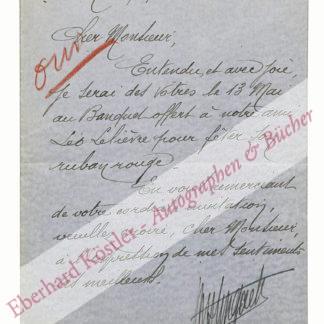 Cher Monsieur,
oui
Entendu, et avec joie,
je serai des vôtres le 13 Mai
au Banquet offert à notre ami
Léo Lelièvre pour fêter son
ruban rouge.
En vous remerciant
de votre cordiale invitation,
veuillez croire, cher Monsieur,
à l'expression de mes sentiments
les meilleurs.
Eberhard Köstler - Autographen & Bücher